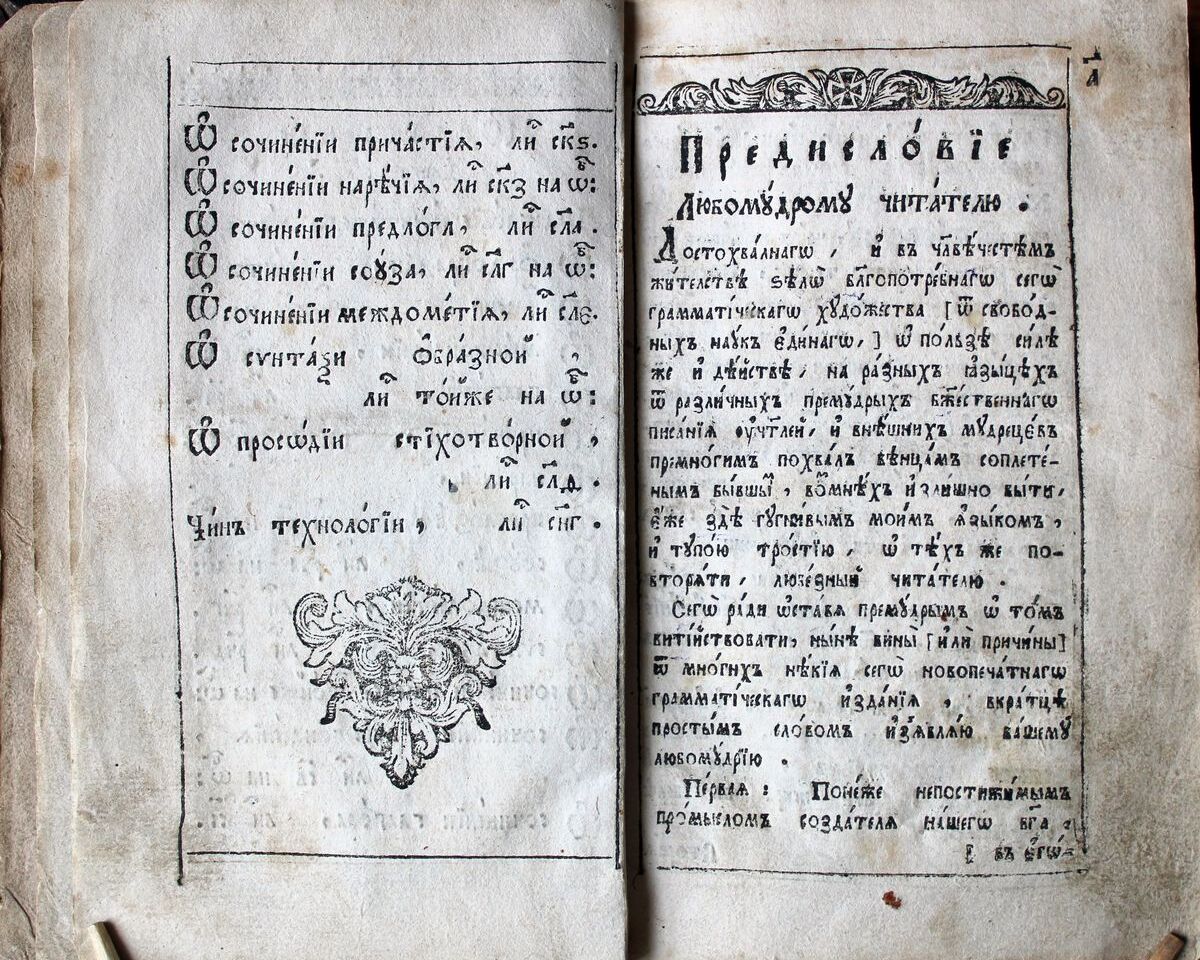 Ѿ сочине́нїи прича́стїѧ, ли́ ск҃ѕ.
Ѿ сочине́нїи наре́чїѧ, ли́ ск҃з на ѡ҃б:
Ѿ сочине́нїи предло́га, ли́ сл҃а.
Ѿ сочине́нїи соу́за, ли́ сл҃г на ѡ҃б:
Ѿ сочине́нїи междоме́тїѧ, ли́ сл҃є.
Ѿ сѵнта́ѯи ѻ҆бра́зной,
ли́ то́йже на ѡ҃б:
Ѿ просѡ́дїи стїхотво́рной,
ли́ сл҃д.
Чи́нъ техноло́гїи, ли́ сн҃г.
а҃
Предисло́вїе
Любому́дрому чита́телю.
Достохва́лнагѡ, и҆ въ чл҃вѣ́честѣмъ
жи́телствѣ ѕѣлѡ̀ бл҃гопотре́бнагѡ сегѡ̀
граммати́ческагѡ худо́жества [ѿ свобо́д-
ныхъ нау́къ є҆ди́нагѡ,] ѡ҆ по́льзѣ си́лѣ
же и҆ дѣ́йствѣ, на ра́зныхъ ꙗ҆зы́цѣхъ
ѿ разли́чныхъ прему́дрыхъ бж҃е́ственнагѡ
писа́нїѧ ѹ҆чт҃лей, и҆ внѣ́шнихъ мудрецє́въ
премно́гимъ похва́лъ вѣнца́мъ соплете́-
нымъ бы́вшы, во́мнѣхъ и҆зли́шно бы́ти,
є҆́же здѣ̀ гугни́вымъ мои́мъ ѧ҆зы́комъ,
и҆ тупо́ю тро́стїю, ѡ҆ тѣ́хъ же по-
вторѧ́ти, любе́зный чита́телю.
Сегѡ̀ ра́ди ѡ҆ста́вѧ прему́дрымъ ѡ҆ то́мъ
виті́йствовати, ны́нѣ вины̀ [и҆лѝ причи́ны]
ѿ мно́гихъ нѣ́кїѧ сегѡ̀ новопеча́тнагѡ
граммати́ческагѡ и҆зда́нїѧ, вкра́тцѣ
просты́мъ сло́вомъ и҆з̾ѧвлѧ́ю ва́шему
любому́дрїю.
Пе́рваѧ: Поне́же непостижи́мымъ
про́мысломъ созда́телѧ на́шегѡ бг҃а,
[ въ є҆гѡ̀-